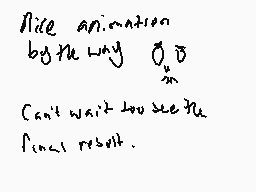 Nice animation
by the way
Can't wait too see the
final result.